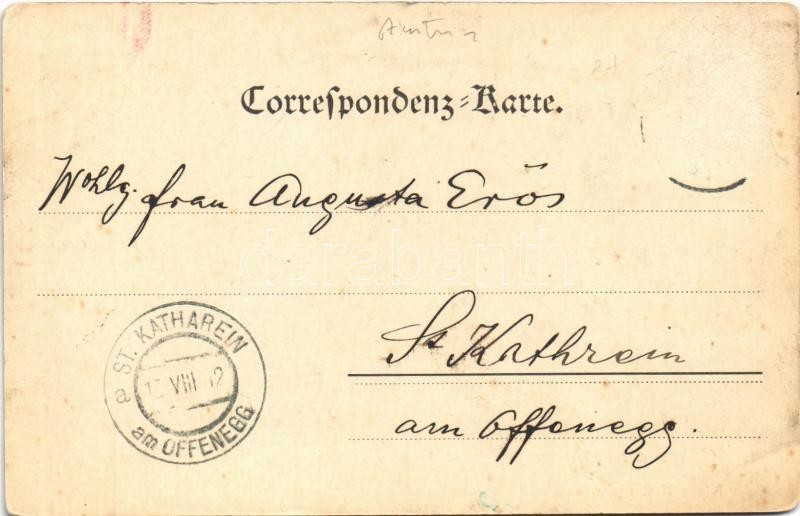 Austria
Correspondenz-Karte.
Wohlg. frau Augusta Erös
darabanth
St Kathrein
am Offenegg.
a ST. KATHAREIN
VIII
am OFFENEGG